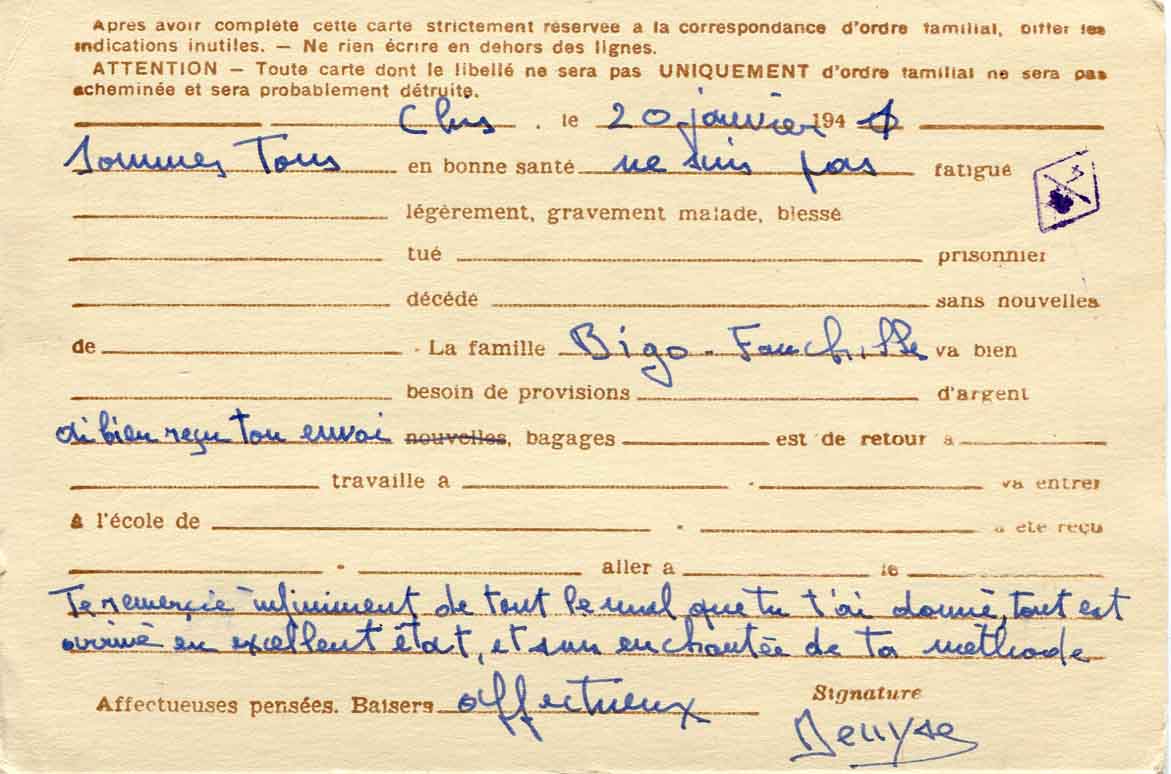 Après avoir complété cette carte strictement réservée à la correspondance d'ordre familial, biffer les
indications inutiles. — Ne rien écrire en dehors des lignes.
ATTENTION — Toute carte dont le libellé ne sera pas UNIQUEMENT d'ordre familial ne sera pas
acheminée et sera probablement détruite.
le 20 janvier 194
Sommes Tous en bonne santé ne suis pas fatigué
légèrement, gravement malade, blessé
tué prisonnier
décédé sans nouvelles
de - La famille Bigo - Fauchille va bien
besoin de provisions d'argent
ai bien reçu ton envoi nouvelles, bagages est de retour à
travaille à va entrer
à l'école de a été reçu
aller à le
Te remercie infiniment de tout le mal que tu t'ai donné, tout est
arrivé en excellent état, et suis enchantée de ta méthode
Affectueuses pensées. Baisers affectueux
Signature
Denyse